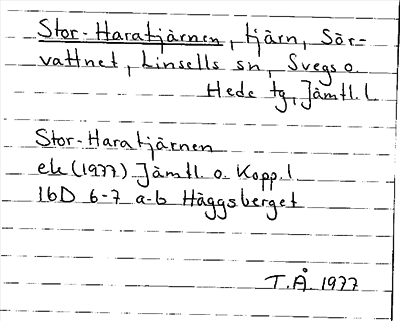 Stor-Haratjärnen, tjärn, Sör-
vattnet, Linsells sn, Svegs o.
Hede tg, Jämtl. L
Stor-Haratjärnen
ek (1977) Jämtl. o. Kopp. l
16D 6-7 a-b Häggsberget
T.Å. 1977